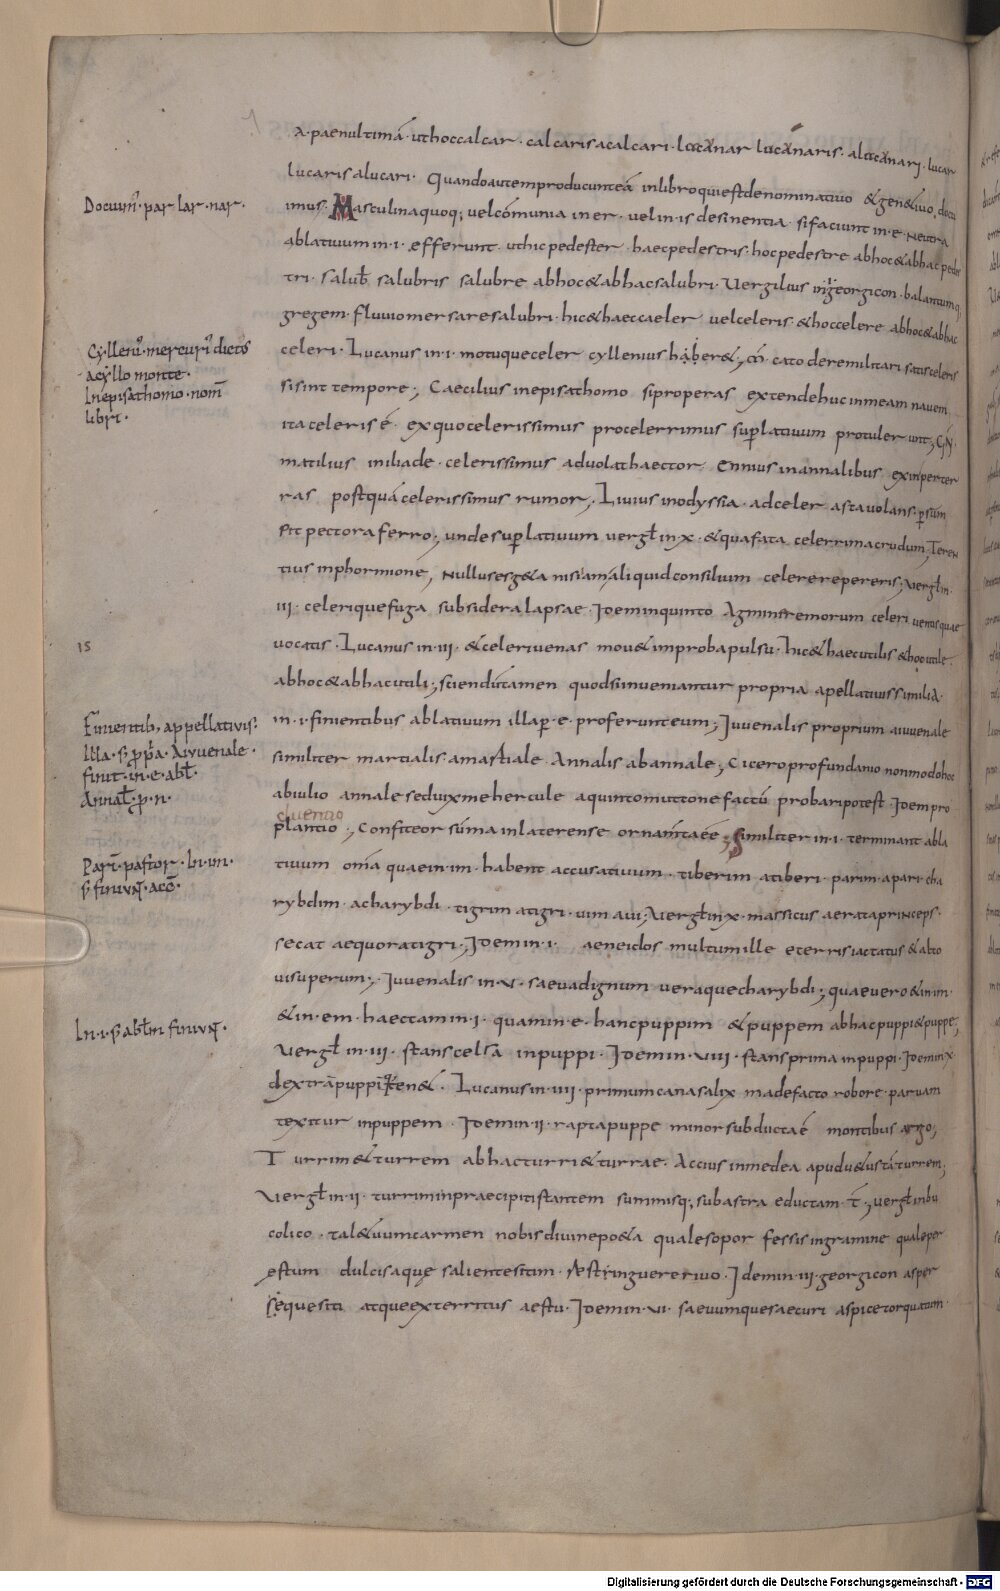 a· paenultimā· ut hoc calcar· calcaris a calcari· lucanar lucanaris· alucanari· lucar
lucaris alucari· Quando autem producunt eā in libro qui est denominatiuo & gen&iuo, docu
imus· Masculina quoq; uel cōmunia in er· uel in·is desinentia· si faciunt in·e· Neutra
ablatiuum in·i· efferunt· ut hic pedester· haec pedestris· hoc pedestre ab hoc & ab hac pedes
tri· salub̄ salubris salubre ab hoc & ab hac salubri· Uergilius in georgicon· balantumq;
gregem· fluuio mersare salubri· hic & haec caeler uel celeris & hoc celere ab hoc & ab hac
celeri· Lucanus in·i· motuque celer cyllenius hab̄er&; m̄· cato de re militari satis celeris
si sint tempore; Caecilius in epistathomo si properas extende huc in meam nauem
ita celeris ē· ex quo celerissimus pro celerrimus sup̄latiuum protulerunt; GN̄·
matilius in iliade· celerissimus aduolat haector· Ennius in annalibus exin perter
ras postquā celerissimus rumor; Liuius in odyssia· ad celer asta uolans· p̄sum
pit pectora ferro; unde sup̄latiuum uergł in·x· & qua fata celerrima crudum; Teren
tius in phormione; Nullus es g&a nisi aliquid consilium celere repereris; uergł in·
iii· celerique fuga sub sidera lapsae· Idem in quinto Agmina remorum celeri uentosque
uocatis· Lucanus in·iii· & celeri uenas mou& improba pulsu· hic & haec utilis & hoc utile·
ab hoc & ab hac utili; sciendū tamen quod si inueniantur propria apellatiuis similia·
in·i· finientibus ablatiuum illa p̄·e· proferunt eum; Iuuenalis proprium a iuuenale
similiter martialis· a martiale Annalis ab annale; Cicero pro fundanio non modo hoc
ab iulio annale sed uix me hercule a quinto muttone factū probari potest Idem pro
cluentio
plantio; Confiteor sūma in laterense ornamīta eē; Similiter in·i· terminant abla
tiuum omīa quae in·im· habent accusatiuum· tiberim a tiberi· parim· a pari· cha
rybdim· a charybdi· tigrim a tigri· uim a ui; Uergł in·x· massicus aerata princeps·
secat aequora tigri; Idem in·i· aeneidos multum ille e terris iactatus & alto
ui superum; Iuuenalis in·v· saeua dignum ueraque charybdi; quae uero & in im·
& in·em· haec tam in·i· quam in·e· hanc puppim & puppem ab hac puppi & puppe;
Uergł in·iii· stans celsa in puppi· Idem in·viii· stans prima in puppi· Idem in x·
dextrā puppi ten&· Lucanus in·iiii· primum cana salix madefacto robore· paruam
texitur in puppem· Idem in·ii· rapta puppe minor subducta ē montibus argo;
Turrim & turrem ab hac turri & turrae· Accius in medea apud u&ustā turrem;
Uergł in·ii· turrim in praecipiti stantem summisq; sub astra eductam· t̄; uergł in bu
colico· tale tuum carmen nobis diuine po&a quale sopor fessis in gramine quale per
estum dulcis aque saliente sitim· restinguere riuo· Idem in·iii· georgicon asper
sęque siti atque exterritus aestu· Idem in·vi· saeuumque securi aspice torquatum·
Docuim̄'· par lar·nar·
Cyllenī· mercurī dictus
a cyllo monte·
In epistathomo· nom̄
libri·
15
Finientib; appellatiuis·
Illa·s̄ ꝓpīa· A iuuenale·
finit·in·e·abł·
Annał·ꝓ·n·
Pari· pastor·In·im·
s̄ finiuN̄·acō·
In·i·s̄ ablīm finiuN̄·
Digitalisierung gefördert durch die Deutsche Forschungsgemeinschaft · DFG